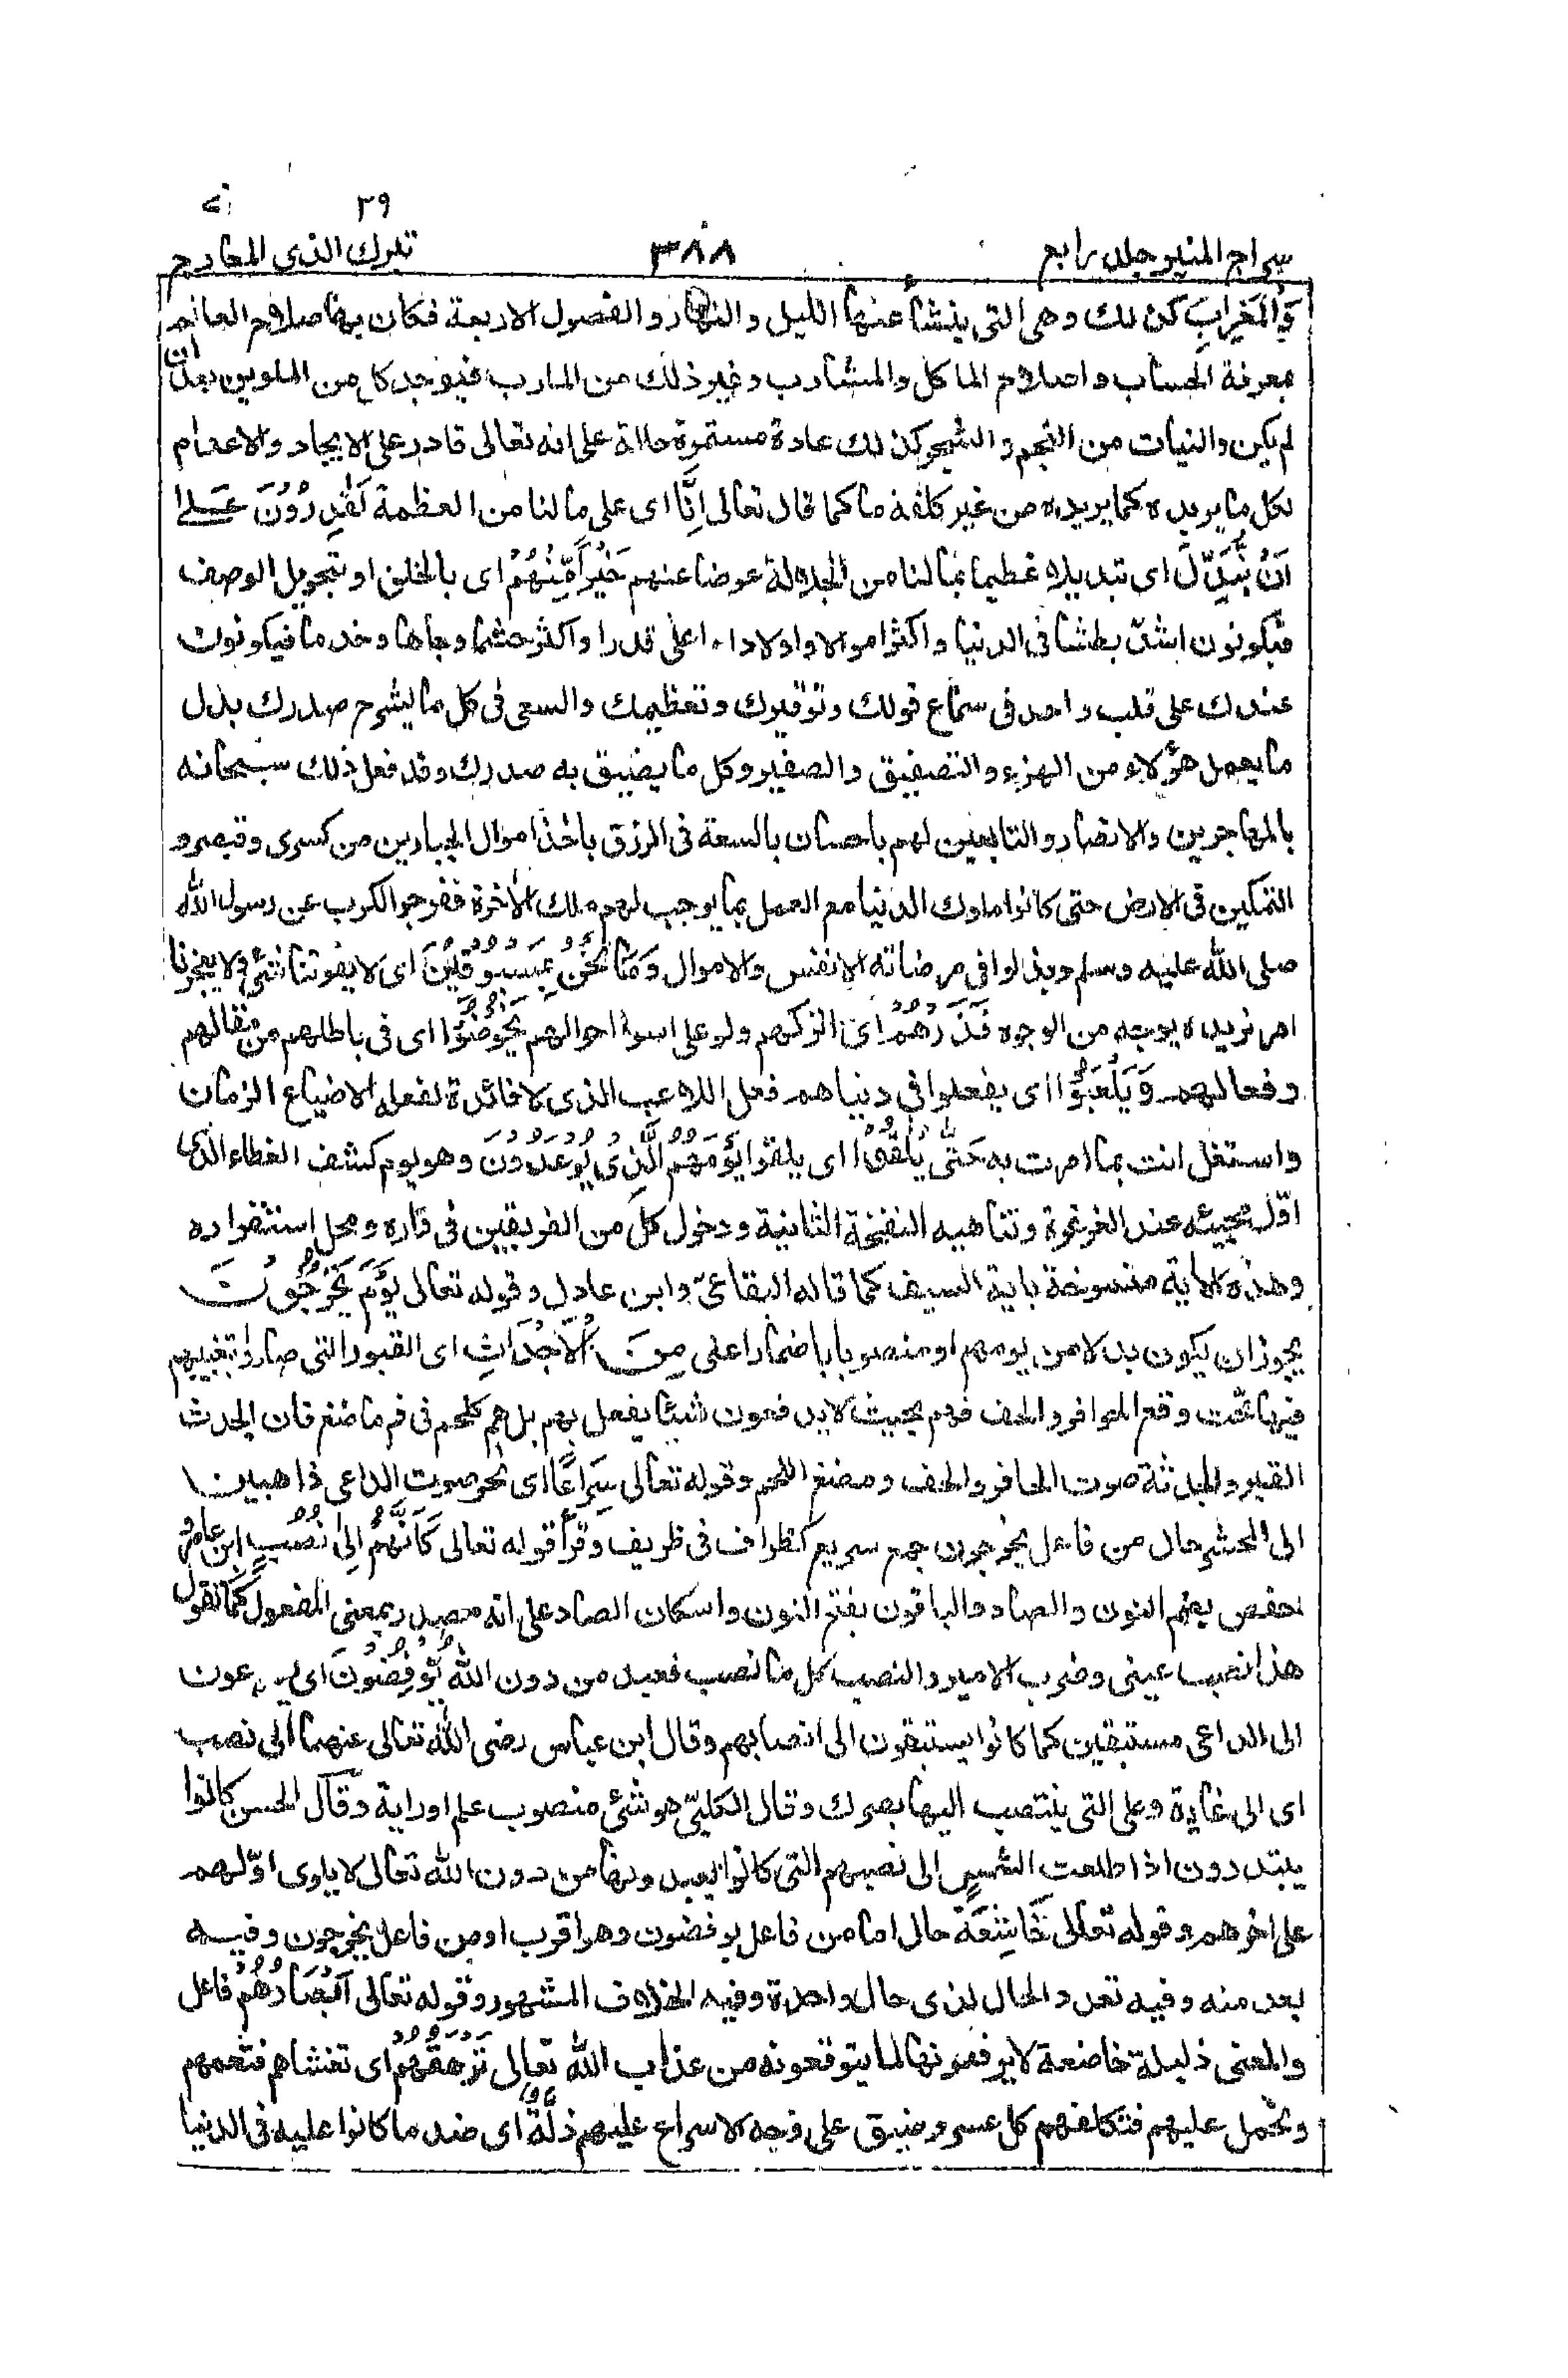 ٢٩
سراج المنير جلد رابع ٣٨٨ تبارك الذى المعارج
وَالْمَغٰرِبِ كذلك وهى التى ينشأ عنها الليل والنهار والفصول الاربعة فكان بها صلاح العالم
بمعرفة الحساب واصلاح الماكل والمشارب وغير ذلك من المارب فيوجد كل من الملوين بعد ان
لم يكن والنبات من النجم والشجر كذلك عادة مستمرة دالة على انه تعالى قادر على الايجاد والاعدام
لكل ما يريده كما يريده من غير كلفة ما كما قال تعالى اِنَّا اى على ما لنا من العظمة لَقٰدِرُوْنَ عَلٰى
اَنْ نُّبَدِّلَ اى تبديلا عظيما بما لنا من الجلالة عوضا عنهم خَيْرًا مِّنْهُمْ اى بالخلق او بتحويل الوصف
فيكونون اشدّ بطشا فى الدنيا واكثر اموالا واولادا واعلى قدرا واكثر حشما وجاها وخدما فيكونون
عندك على قلب واحد فى سماع قولك وتوقيرك وتعظيمك والسعى فى كل ما يشرح صدرك بدل
ما يعمل هؤلاء من الهزء والتصفيق والصفير وكل ما يضيق به صدرك وقد فعل ذلك سبحانه
بالمهاجرين والانصار والتابعين لهم باحسان بالسعة فى الرزق باخذ اموال الجبارين من كسرى وقيصر و
التمكين فى الارض حتى كانوا ملوك الدنيا مع العمل بما يوجب لهم ملك الاخرة ففرجوا الكرب عن رسول الله
صلى الله عليه وسلم وبذلوا فى مرضاته الانفس والاموال وَمَا نَحْنُ بِمَسْبُوْقِيْنَ اى لا يفوتنا شئ ولا يعجزنا
امر نريده بوجه من الوجوه فَذَرْهُمْ اى اتركهم ولو على اسوا احوالهم يَخُوْضُوْا اى فى باطلهم من مقالهم
وفعالهم وَيَلْعَبُوْا اى يفعلوا فى دنياهم فعل اللاعب الذى لا فائدة لفعله الا ضياع الزمان
واستغل انت بما امرت به حَتّٰى يُلٰقُوْا اى يلقوا يَوْمَهُمُ الَّذِىْ يُوْعَدُوْنَ وهو يوم كشف الغطاء الذى
اوّل مجيئه عند الغرغرة وتناهيه النفخة الثانية ودخول كلّ من الفريقين فى داره ومحل استقراره
وهذه الاية منسوخة باية السيف كما قاله البقاعىّ وابن عادل وقوله تعالى يَوْمَ يَخْرُجُوْنَ
يجوز ان يكون بدلا من يومهم او منصوبا باضمار اعنى مِنَ الْاَجْدَاثِ اى القبور التى صاروا بتغييبهم
فيها تحت وقع الحوافر والخف فهم بحيث لا يدفعون شيئا يفعل بهم بل هم كلحم فى فم ماضغ فان الجدث
القبر والجدثة صوت الحافر والخف ومضغ اللحم وقوله تعالى سِرَاعًا اى نحو صوت الداعى ذاهبين
الى المحشر حال من فاعل يخرجون جمع سريع كظراف فى ظريف وقرأ قوله تعالى كَاَنَّهُمْ اِلٰى نُصُبٍ ابن عامر و
حفص بضم النون والصاد والباقون بفتح النون واسكان الصاد على انه مصدر بمعنى المفعول كما تقول
هذا نصب عينى وضرب الامير والنصب كل ما نصب فعبد من دون الله يُّوْفِضُوْنَ اى يسرعون
الى الداعى مستبقين كما كانوا يستبقون الى انصابهم وقال ابن عباس رضى الله تعالى عنهما الى نصب
اى الى غاية وعلى التى ينتصب اليها بصرك وقال الكلبىّ هو شئ منصوب علم او راية وقال الحسن كانوا
يبتدرون اذا طلعت الشمس الى نصبهم التى كانوا يعبدونها من دون الله تعالى لا يلوى اوّلهم
على اخرهم وقوله تعالى خَاشِعَةً حال اما من فاعل يوفضون وهو اقرب او من فاعل يخرجون وفيه
بعد منه وفيه تعدد الحال لذى حال واحدة وفيه الخلاف المشهور وقوله تعالى اَبْصَارُهُمْ فاعل
والمعنى ذليلة خاضعة لا يرفعونها لما يتوقعونه من عذاب الله تعالى تَرْهَقُهُمْ اى تغشاهم فتعمهم
وتحمل عليهم فتكلفهم كل عسر وضيق على وجه الاسراع عليهم ذِلَّةٌ اى ضد ما كانوا عليه فى الدنيا